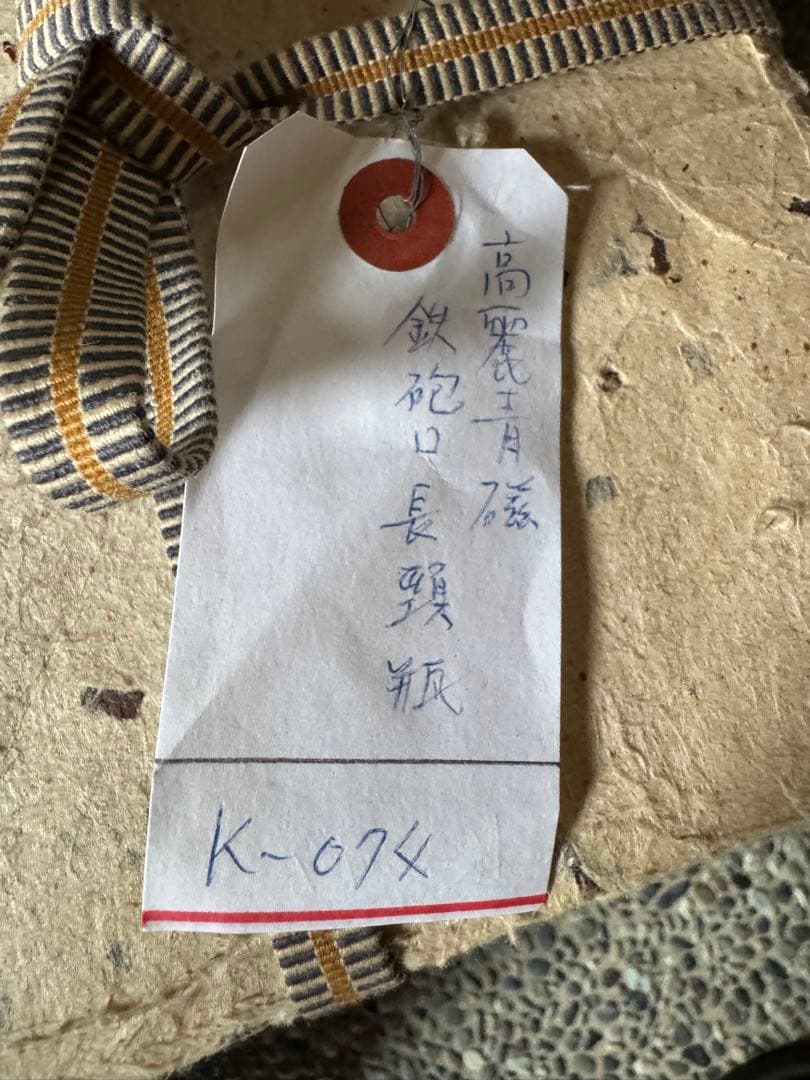 高麗青磁
鉄砲口長頸瓶
K-074